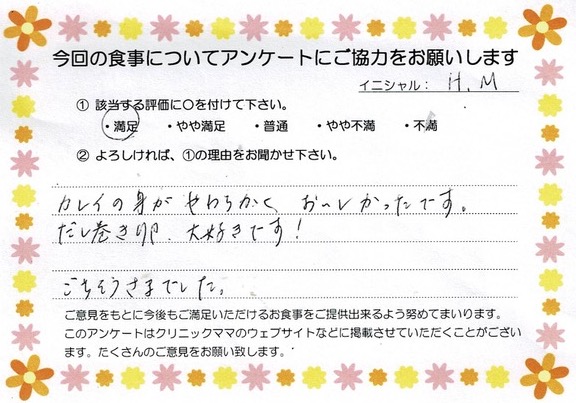 今回の食事についてアンケートにご協力をお願いします
イニシャル： H.M
① 該当する評価に○を付けて下さい。
・満足 ・やや満足 ・普通 ・やや不満 ・不満
② よろしければ、①の理由をお聞かせ下さい。
カレイの身が やわらかく おいしかったです。
だし巻き卵、大好きです！
ごちそうさまでした。
ご意見をもとに今後もご満足いただけるお食事をご提供出来るよう努めてまいります。
このアンケートはクリニックママのウェブサイトなどに掲載させていただくことがござい
ます。たくさんのご意見をお願い致します。